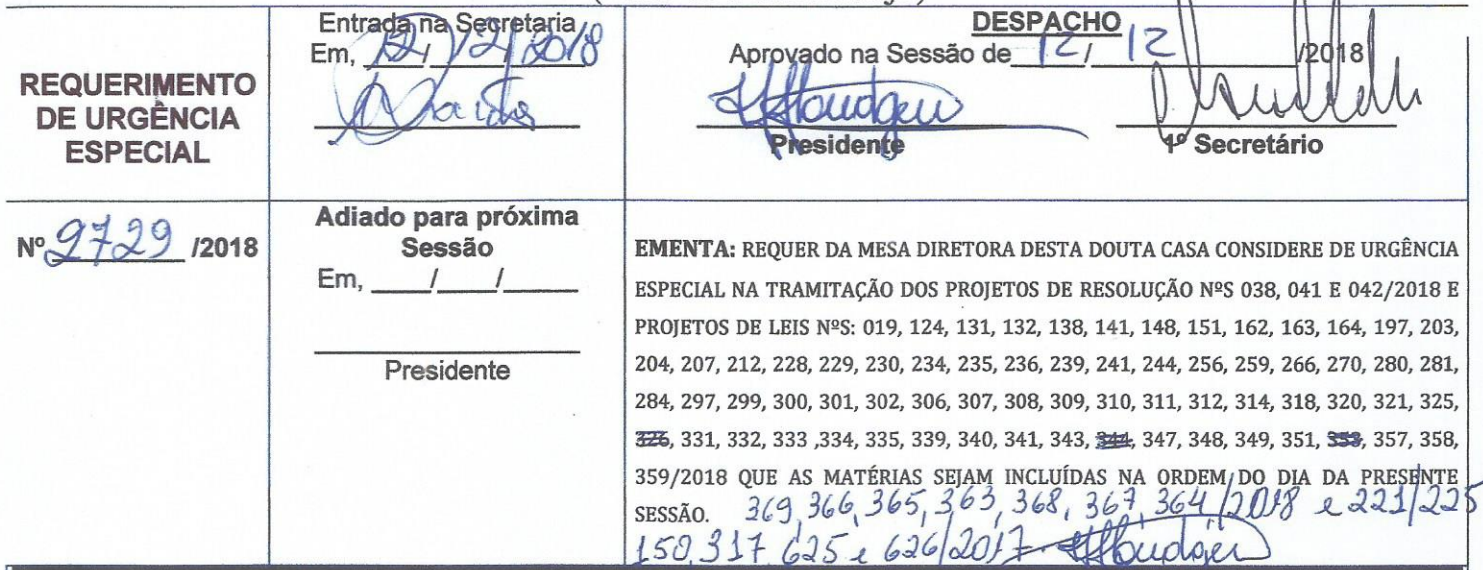 REQUERIMENTO
DE URGÊNCIA
ESPECIAL
Entrada na Secretaria
Em, 12/12/2018
DESPACHO
Aprovado na Sessão de 12/12/2018
Presidente
1º Secretário
Nº 9729 /2018
Adiado para próxima
Sessão
Em, ____/____/______
Presidente
EMENTA: REQUER DA MESA DIRETORA DESTA DOUTA CASA CONSIDERE DE URGÊNCIA
ESPECIAL NA TRAMITAÇÃO DOS PROJETOS DE RESOLUÇÃO NºS 038, 041 E 042/2018 E
PROJETOS DE LEIS NºS: 019, 124, 131, 132, 138, 141, 148, 151, 162, 163, 164, 197, 203,
204, 207, 212, 228, 229, 230, 234, 235, 236, 239, 241, 244, 256, 259, 266, 270, 280, 281,
284, 297, 299, 300, 301, 302, 306, 307, 308, 309, 310, 311, 312, 314, 318, 320, 321, 325,
326, 331, 332, 333 ,334, 335, 339, 340, 341, 343, 344, 347, 348, 349, 351, 353, 357, 358,
359/2018 QUE AS MATÉRIAS SEJAM INCLUÍDAS NA ORDEM DO DIA DA PRESENTE
SESSÃO. 369, 366, 365, 363, 368, 367, 364/2018 e 221/225
150, 317 625 e 626/2017